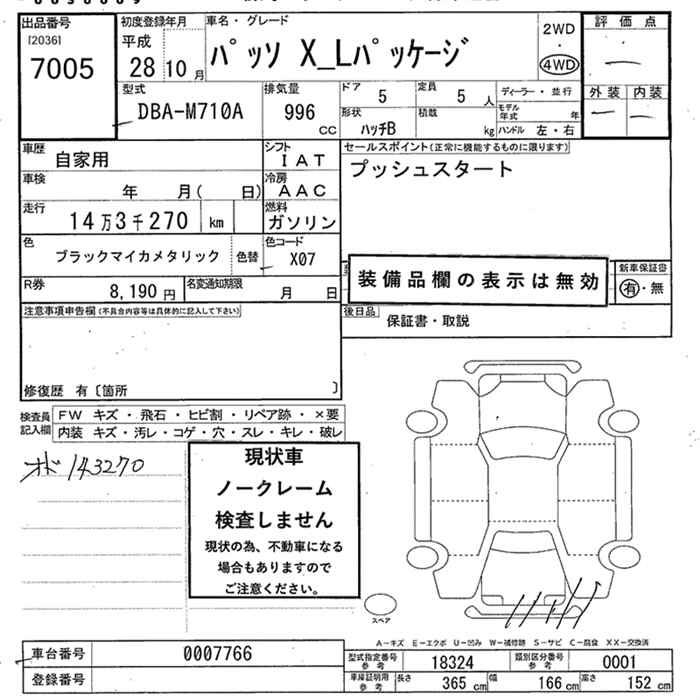 出品番号
[20361
7005
初度登録年月
平成
28 10 月
車名・グレード
パッソ X_Lパッケージ
2WD
・
4WD
評価点
外装 内装
型式
DBA-M710A
排気量
996
CC
ドア
5
定員
5 人
形状
ハッチB
積載
kg
ディーラー・並行
モデル年式 年
ハンドル 左・右
車歴
自家用
シフト
IAT
車検
年 月( 日)
冷房
AAC
走行
14万3千270 km
燃料
ガソリン
色
ブラックマイカメタリック
色替
色コード
X07
R券
8,190 円
名変通知期限
月 日
セールスポイント(正常に機能するものに限ります)
プッシュスタート
装備品欄の表示は無効
新車保証書
有・無
後日品
保証書・取説
注意事項申告欄(不具合内容等は具体的に記入して下さい)
修復歴 有〔箇所 〕
検査員記入欄
FW キズ・飛石・ヒビ割・リペア跡・×要
内装 キズ・汚レ・コゲ・穴・スレ・キレ・破レ
オド 143270
現状車
ノークレーム
検査しません
現状の為、不動車になる
場合もありますので
ご注意ください。
スペア
A-キズ E-エクボ U-凹み W-補修跡 S-サビ C-腐食 XX-交換済
車台番号
0007766
登録番号
型式指定番号
参考
18324
類別区分番号
参考
0001
車庫証明用
参考
長さ 365 cm
幅 166 cm
高さ 152 cm